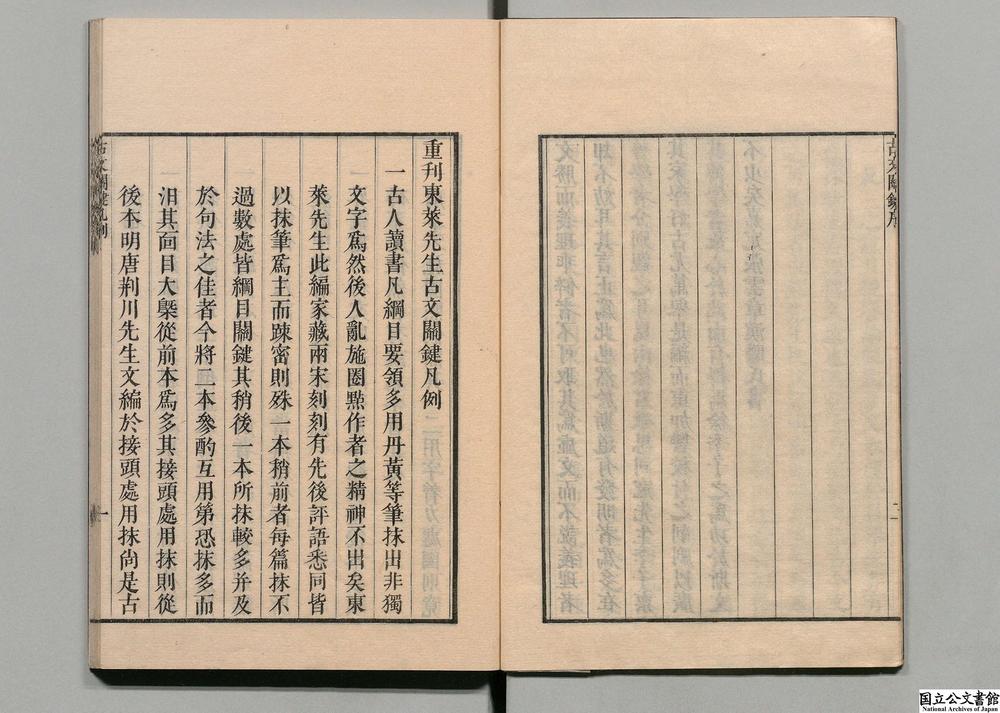 古文關鍵序
二
重刋東萊先生古文關鍵凡例
一古人讀書凡綱目要領多用丹黃等筆抹出非獨
文字爲然後人亂施圈㸃作者之精神不出矣東
萊先生此編家藏兩宋刻刻有先後評語悉同皆
以抹筆爲主而踈密則殊一本稍前者每篇抹不
過數處皆綱目關鍵其稍後一本所抹較多并及
於句法之佳者今將二本參酌互用第恐抹多而
汨其面目大槩從前本爲多其接頭處用抹則從
後本明唐荆川先生文編於接頭處用抹尙是古
古文關鍵凡例
一
国立公文書館
National Archives of Japan